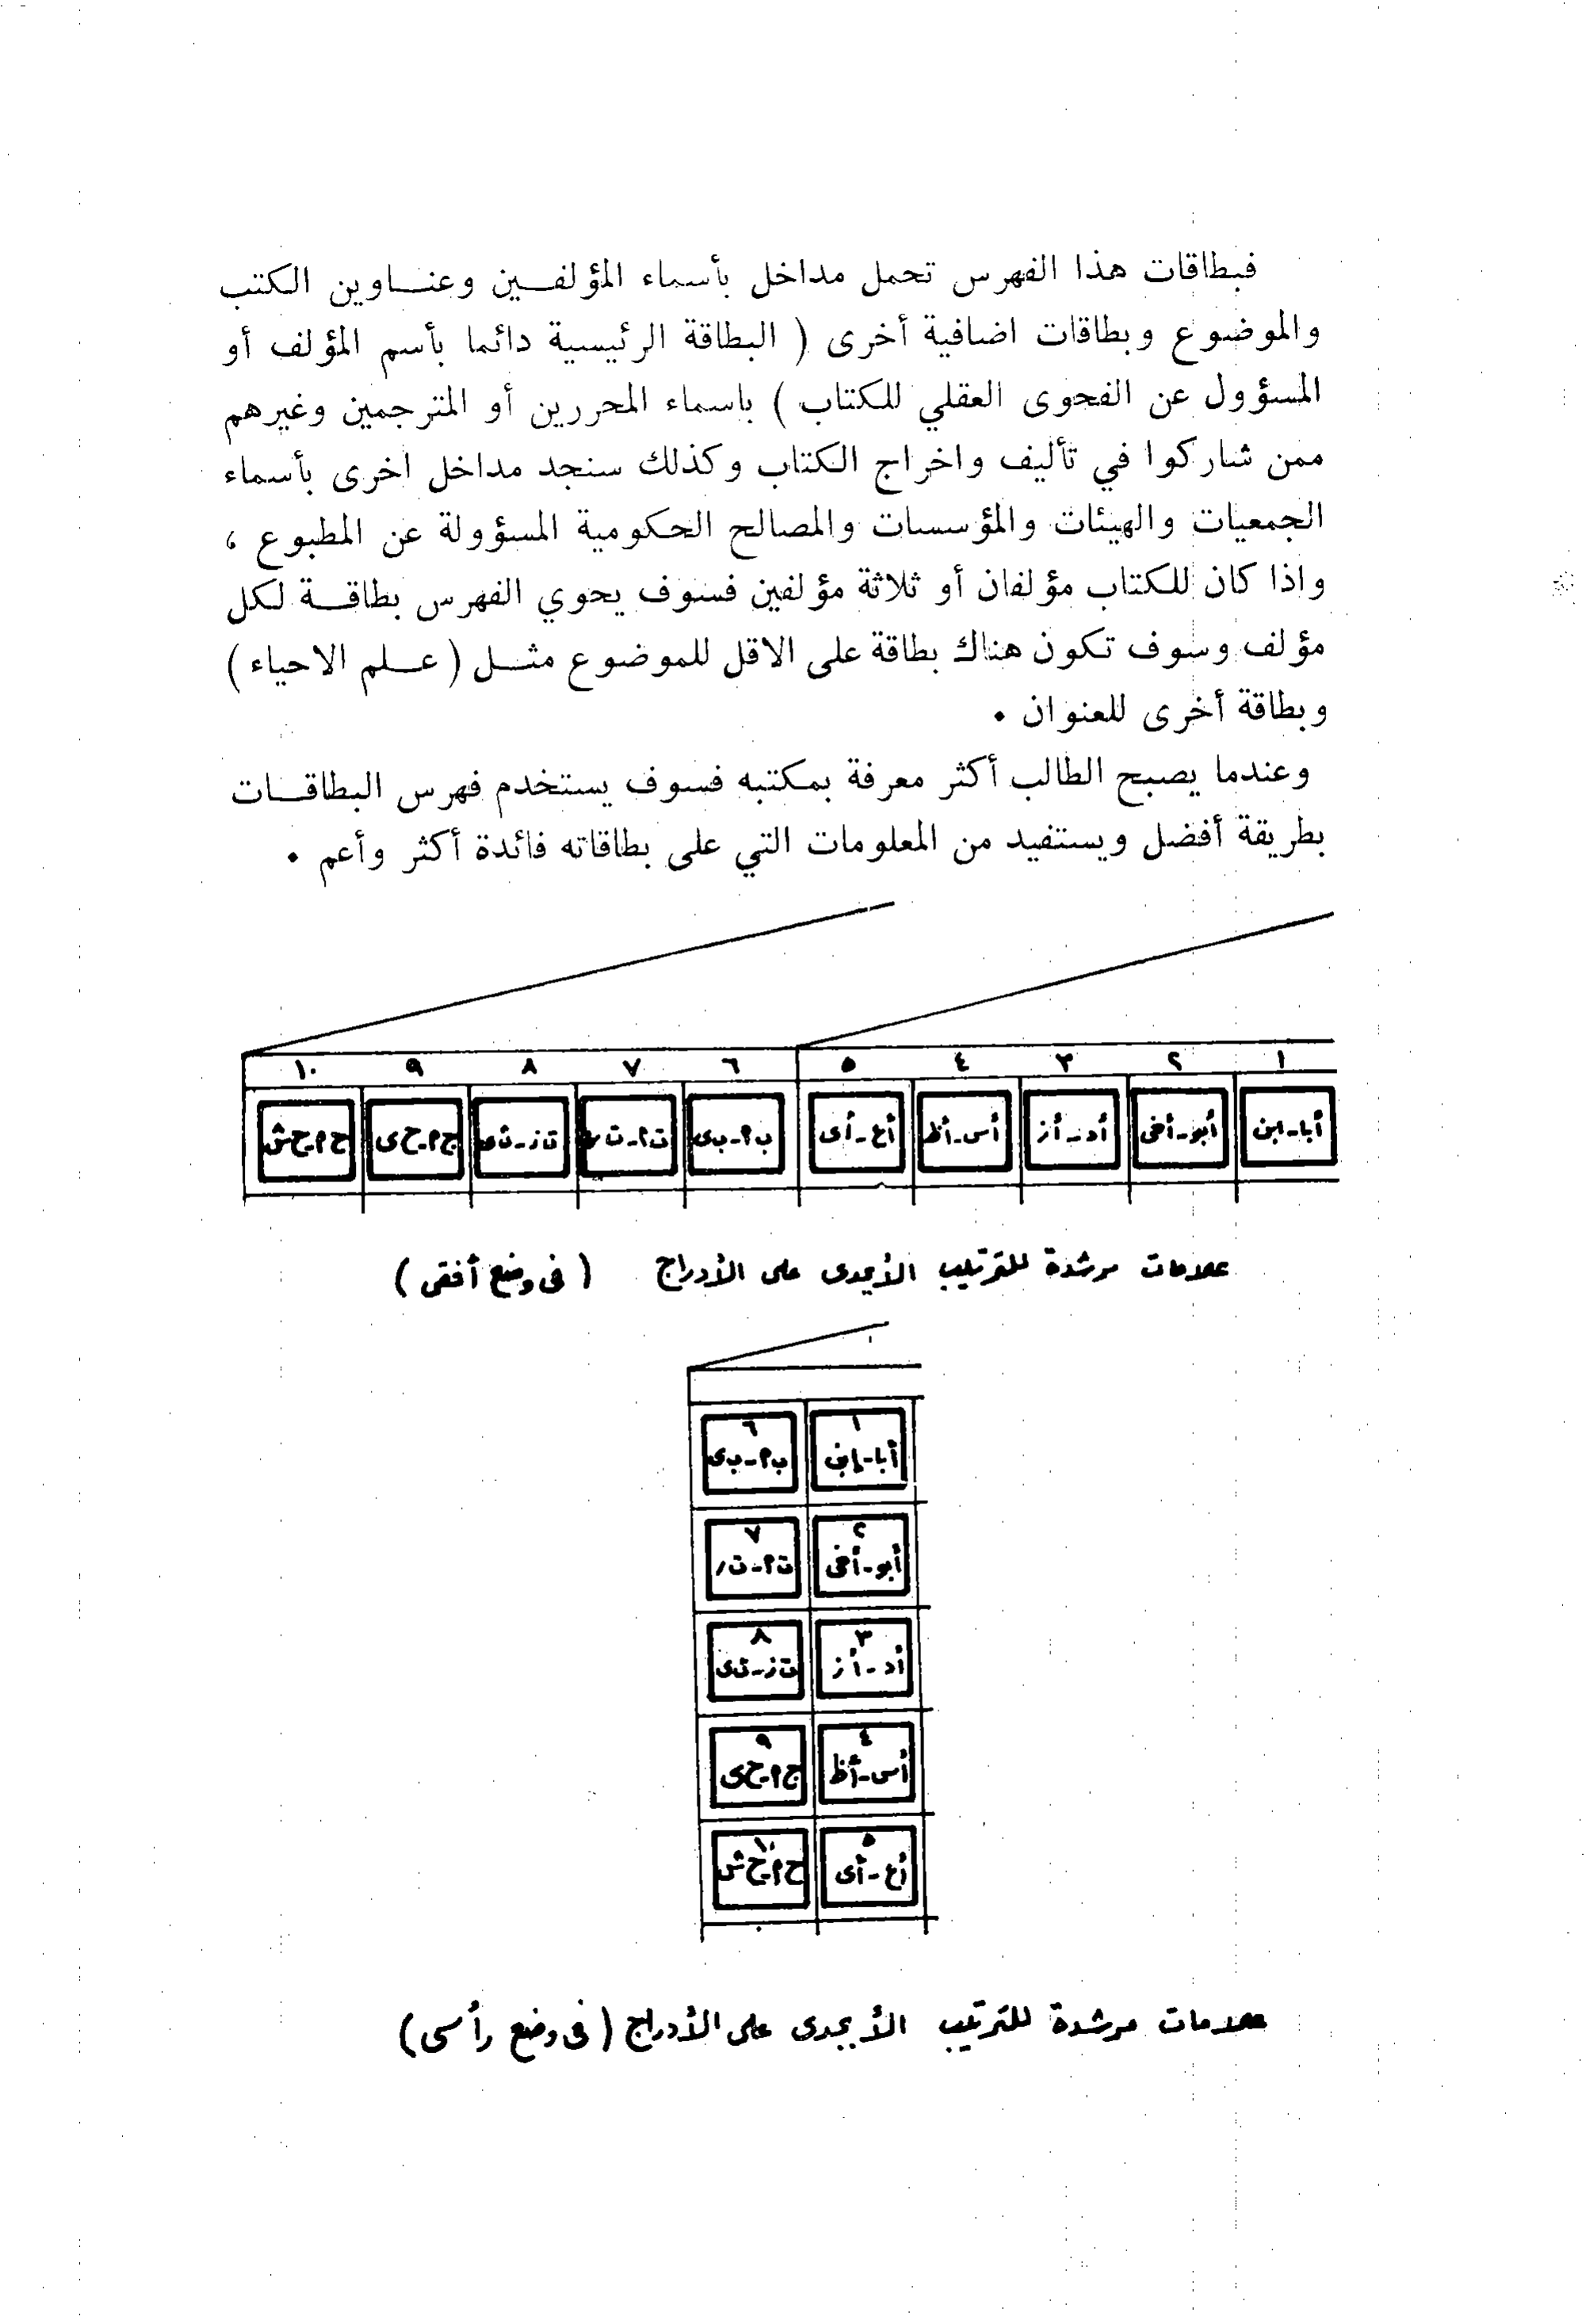 فبطاقات هذا الفهرس تحمل مداخل بأسماء المؤلفين وعناوين الكتب
والموضوع وبطاقات اضافية أخرى ( البطاقة الرئيسية دائما بأسم المؤلف أو
المسؤول عن الفحوى العقلي للكتاب ) باسماء المحررين أو المترجمين وغيرهم
ممن شاركوا في تأليف واخراج الكتاب وكذلك سنجد مداخل اخرى بأسماء
الجمعيات والهيئات والمؤسسات والمصالح الحكومية المسؤولة عن المطبوع ،
واذا كان للكتاب مؤلفان أو ثلاثة مؤلفين فسوف يحوي الفهرس بطاقة لكل
مؤلف وسوف تكون هناك بطاقة على الاقل للموضوع مثل ( علم الاحياء )
وبطاقة أخرى للعنوان .
وعندما يصبح الطالب أكثر معرفة بمكتبه فسوف يستخدم فهرس البطاقات
بطريقة أفضل ويستفيد من المعلومات التي على بطاقاته فائدة أكثر وأعم .
١ ٢ ٣ ٤ ٥ ٦ ٧ ٨ ٩ ١٠
أبا-ابن أبو-أخى أد-أز أس-أظ أع-أى ب٢-بى ت٢-ت ر تز-تى ج٢-جى ح٢-حش
علامات مرشدة للترتيب الأبجدى على الأدراج ( فى وضع أفقى )
١ ٦
أبا-إبن ب٢-بى
٢ ٧
أبو-أخى ت٢-تر
٣ ٨
أد-أز تز-تى
٤ ٩
أس-أظ ج٢-جى
٥ ١٠
أع-أى ح٢-حش
علامات مرشدة للترتيب الأبجدى على الأدراج ( فى وضع رأسى )